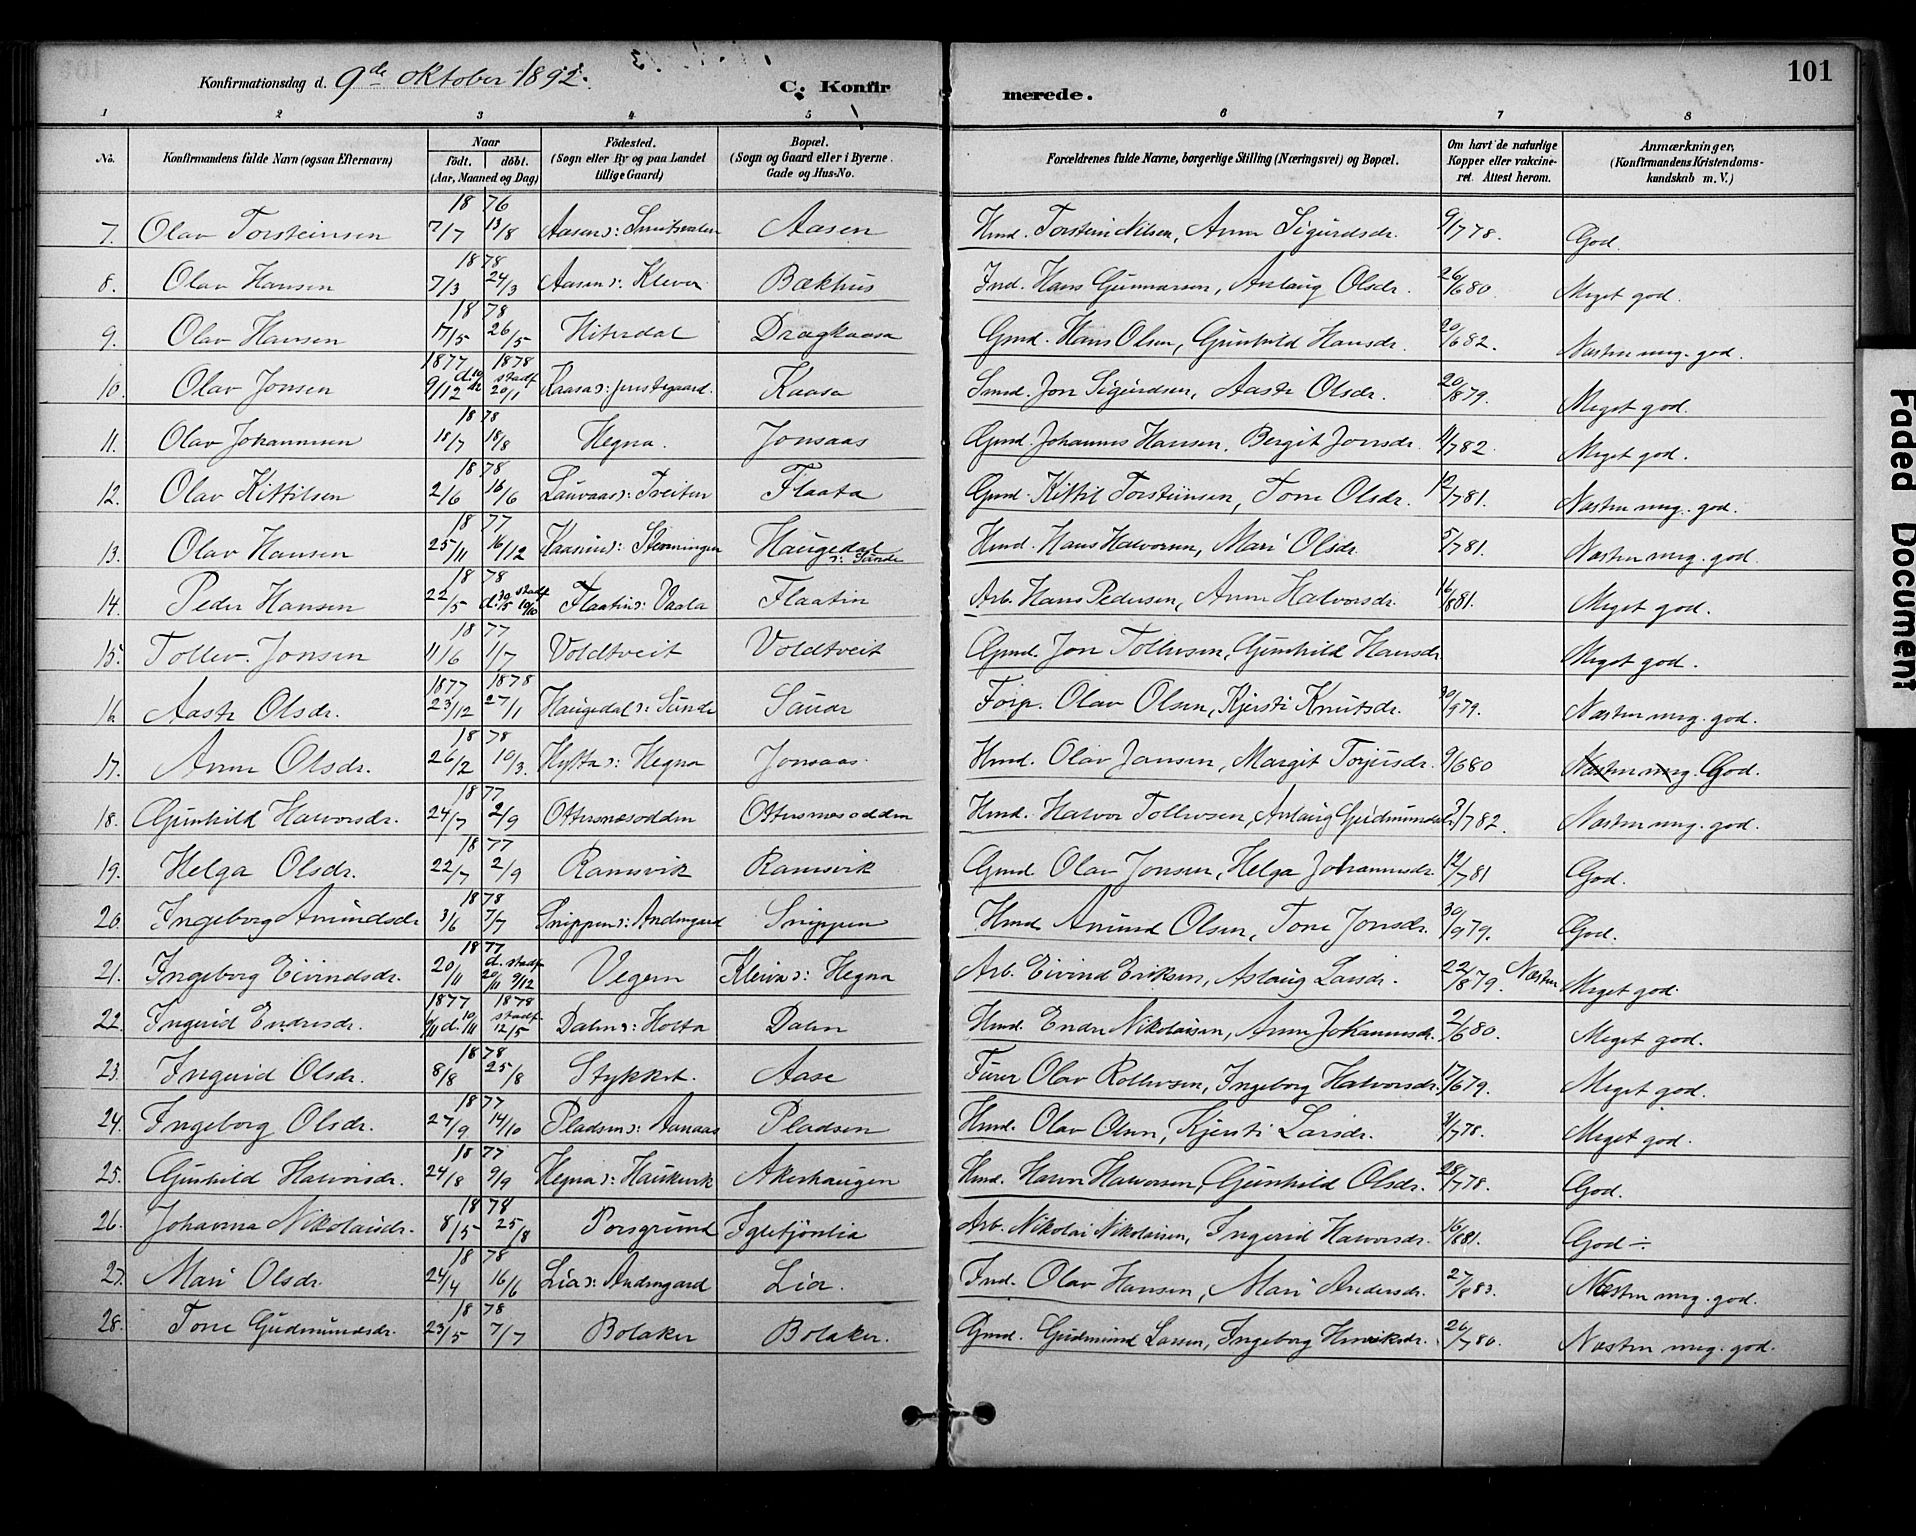 101
Konfirmationsdag d. 9de Oktober 1892.
C. Konfirmerede.
1 2 3 4 5 6 7 8
No. Konfirmandens fulde Navn (ogsaa Efternavn) Naar født. døbt. (Aar, Maaned og Dag) Födested. (Sogn eller By og paa Landet tillige Gaard) Bopæl. (Sogn og Gaard eller i Byerne Gade og Hus-No. Forældrenes fulde Navne, borgerlige Stilling (Næringsvei) og Bopæl. Om havt de naturlige Kopper eller vakcineret. Attest herom. Anmærkninger, (Konfirmandens Kristendomskundskab m. V.)
1876
7. Olav Torsteinsen 7/7 13/8 Aasen Aasen Hmd. Torstein Nilsen, Anne Sigurdsdr. 9/7 78. God.
1878
8. Olav Hansen 7/3 24/3 Aasen s: Kleven Bækhus Ind. Hans Gunnarsen, Aslaug Olsdr. 26/6 80. Meget god.
1878
9. Olav Hansen 17/5 26/5 Hiterdal Dragkaasa Gmd. Hans Olsen, Gunhild Hansdr. 20/6 82. Næsten meg. god.
1877 1878
10. Olav Jonsen 9/12 d. 10/12 stadf. 20/1 Kaasa s: prestegaard. Kaasa Smd. Jon Sigurdsen, Aaste Olsdr. 20/8 79. Meget god.
1878
11. Olav Johannesen 18/7 18/8 Hegna. Jonsaas Gmd. Johannes Hansen, Bergit Jonsdr. 11/7 82. Meget god.
1878
12. Olav Kittilsen 2/6 16/6 Lauvaas s: Tveiten Flaata Gmd. Kittil Torsteinsen, Tone Olsdr. 12/7 81. Næsten meg. god.
1877
13. Olav Hansen 25/11 16/12 Haugedal s: Sunde Hmd. Hans Halvorsen, Mari Olsdr. 5/7 81. Næsten meg. god.
1878
14. Peder Hansen 22/5 d. 30/5 stadf. 10/10 Flaatin s: Vaala Flaatin Arb. Hans Pedersen, Anne Halvorsdr. 16/8 81. Meget god.
1877
15. Tollev. Jonsen 11/6 1/7 Voldtveit Voldtveit Gmd. Jon Tollevsen, Gunhild Hansdr Meget god.
1877 1878
16. Aaste Olsdr. 23/12 27/1 Haugedal s: Sunde Sauar Forp. Olav Olsen, Kjersti Knutsdr. 30/9 79. Næsten meg. god.
1878
17. Anne Olsdr. 26/2 10/3. Hytta s: Hegna Jonsaas. Hmd. Olav Jansen, Margit Torjusdr. 9/6 80 Næsten meg. God.
1877
18. Gunhild Halvorsdr. 24/7 2/9 Ottersnesodden Ottersnesodden Hmd. Halvor Tollevsen, Aslaug Gudmundsdr. 3/7 82. Næsten meg. god.
1877
19. Helga Olsdr. 22/7 2/9 Ramsvik Ramsvik Gmd. Olav Jonsen, Helga Johannesdr. 12/7 81 God.
1878
20. Ingeborg Amundsdr 3/6 7/7 Snippen s: Andregard Snippen Hmd. Amund Olsen, Tone Jonsdr. 30/9 79. God.
1877
21. Ingeborg Eivindsdr. 20/11 d. 20/11 stadf. 9/12 Vegem Kleiva s: Hegna Arb. Eivind Eriksen, Aslaug Larsdr. 22/8 79. Næsten Meget god.
1877 1878
22. Ingerid Endresdr. 9/11 d. 10/11 stadf. 12/5 Dalen s: Holta Dalen Hmd. Endre Nikolaisen, Anne Johannesdr. 2/6 80. Meget god.
1878
23. Ingerid Olsdr. 8/8 25/8 Stykket. Aase Furer Olav Rollevsen, Ingeborg Halvorsdr. 17/6 79. Meget god.
1877
24. Ingeborg Olsdr. 27/9 14/10 Pladsen s: Aanaas Pladsen Hmd. Olav Olsen, Kjersti Larsdr. 3/7 78. Meget god.
1877
25. Gunhild Halvorsdr. 24/8 9/9 Hegna s: Haukevik Akerhaugen Hmd. Halvor Halvorsen, Gunhild Olsdr. 28/7 78. God.
1878
26. Johanna Nikolaidr. 8/5 25/8 Porsgrund Igletjönlia Arb. Nikolai Nikolaisen, Ingerid Halvorsdr. 16/8 81. God ÷.
1878
27. Mari Olsdr. 24/4 16/6 Lia s: Andregaard Lia. Ind. Olav Hansen, Mari Andersdr. 27/8 83. Næsten meg. god.
1878
28. Tone Gudmundsdr. 23/5 7/7 Bolaker Bolaker. Gmd. Gudmund Larsen, Ingeborg Henriksdr. 26/7 80. Næsten meg. god.
Faded Document